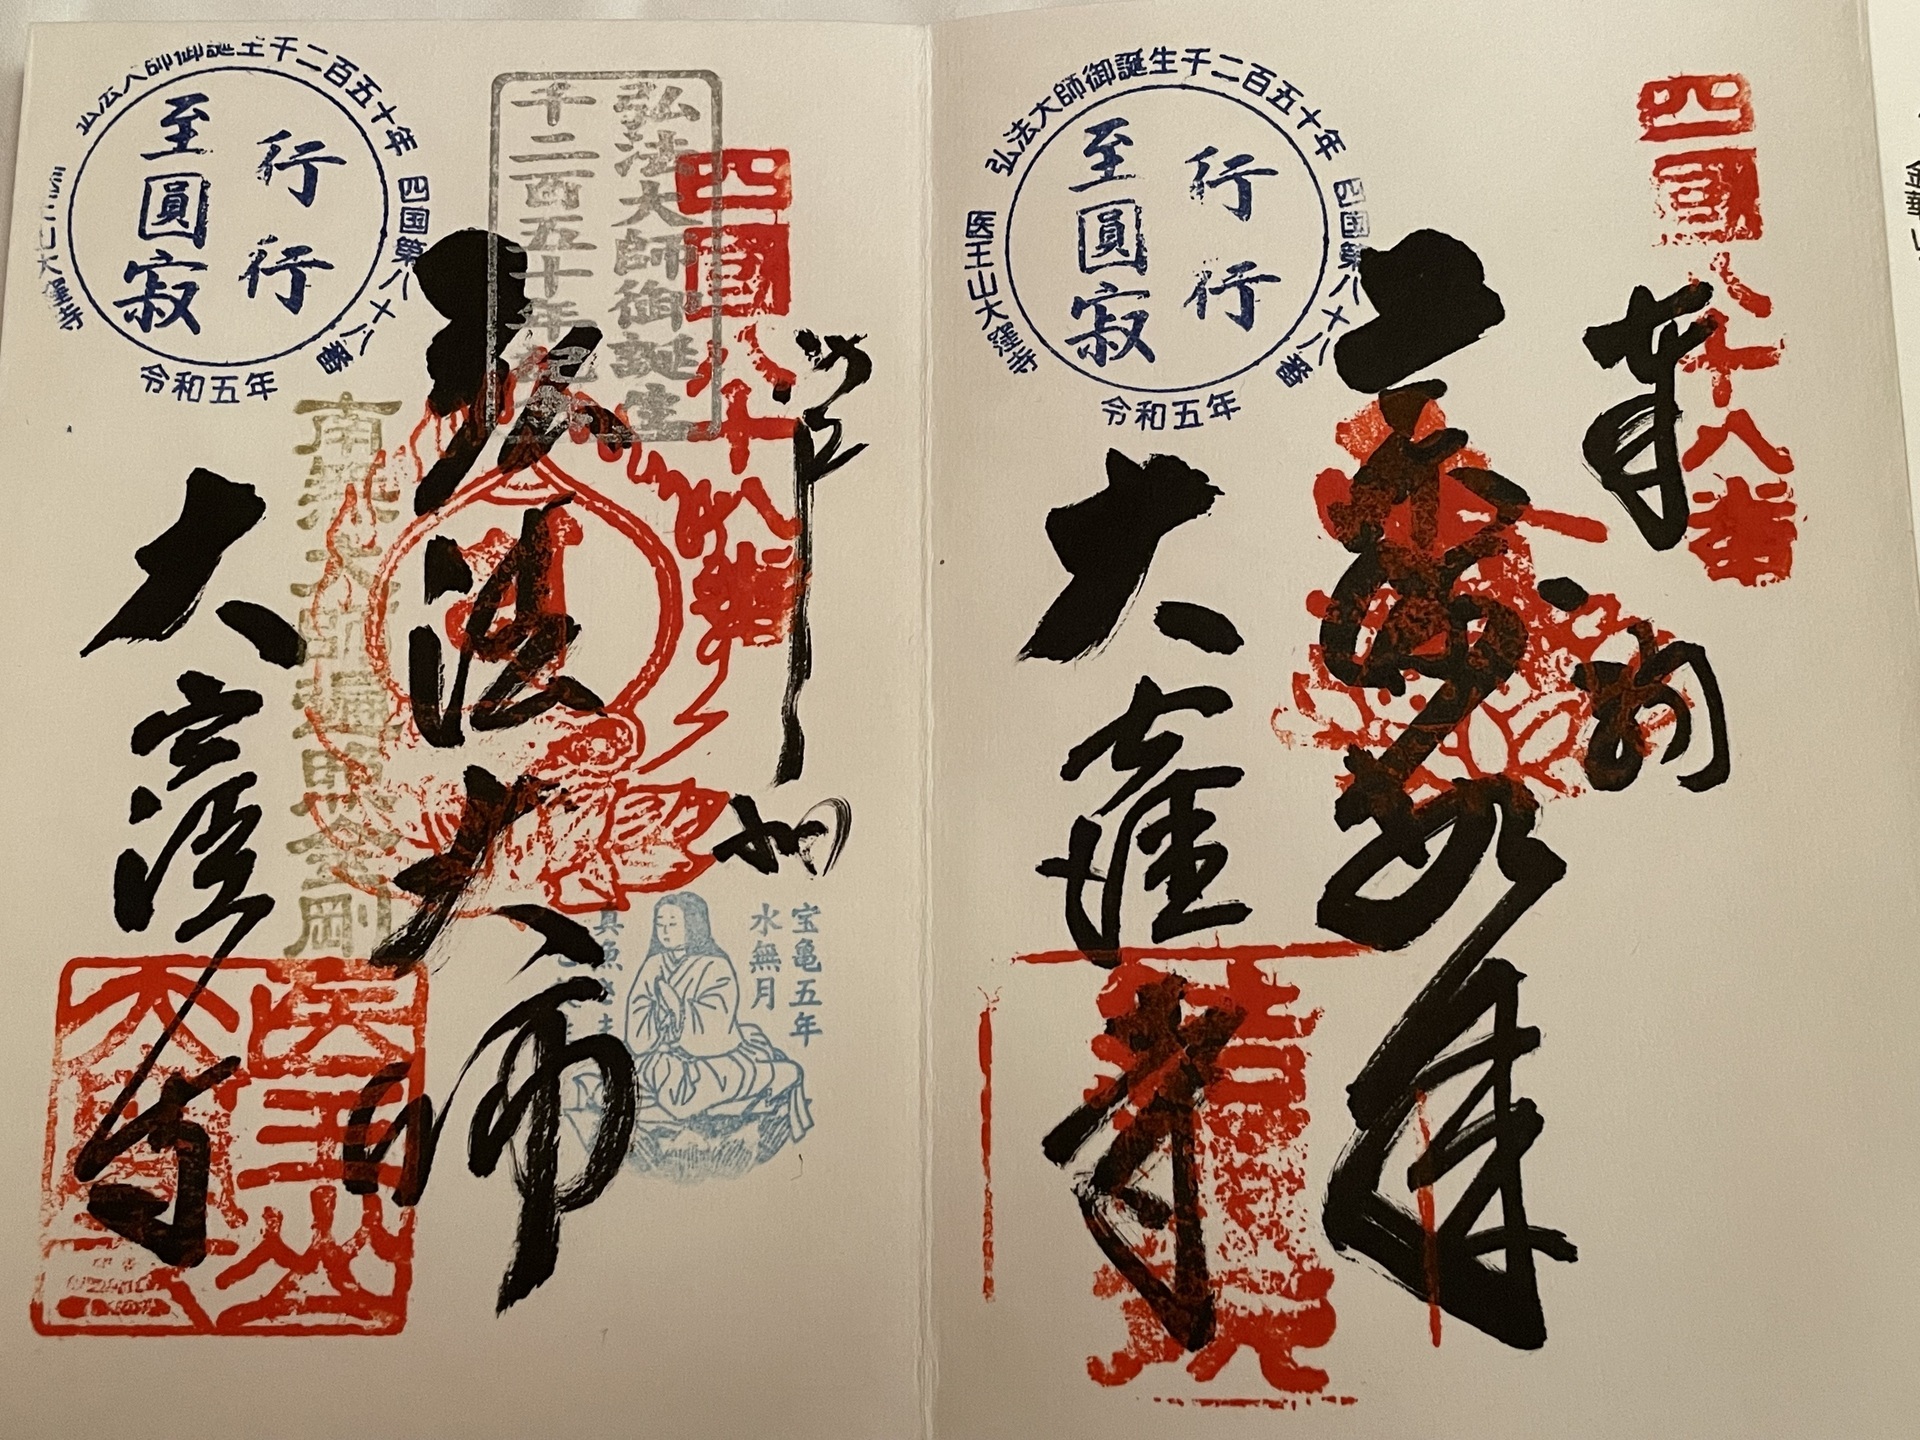 四國八十八番
奉納
弘法大師御誕生千二百五十年
四国第八十八番
医王山大窪寺
令和五年
行行
至圓寂
如来
大窪寺
四國八十八番
弘法大師御誕生
千二百五十年記念
弘法大師
南無大師遍照金剛
大窪寺
医王山
宝亀五年
水無月
弘法大師御誕生千二百五十年
四国第八十八番
医王山大窪寺
令和五年
行行
至圓寂